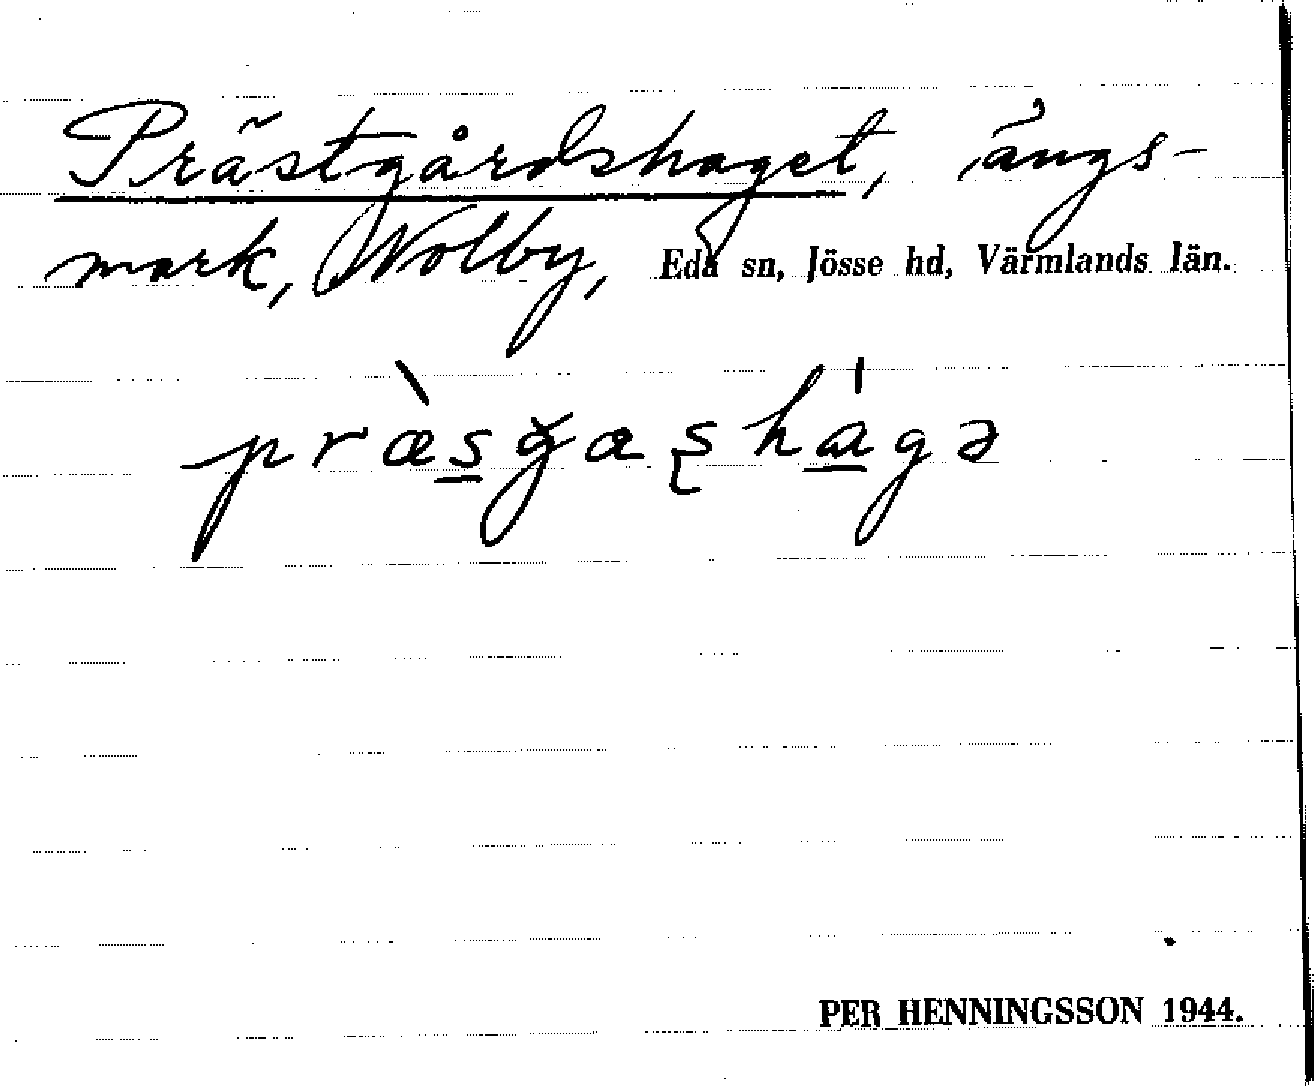 Prästgårdshaget, ängs-
mark, Nolby, Eda sn, Jösse hd, Värmlands län.
præ̀s̲ǥaʂhá̲gə
PER HENNINGSSON 1944.